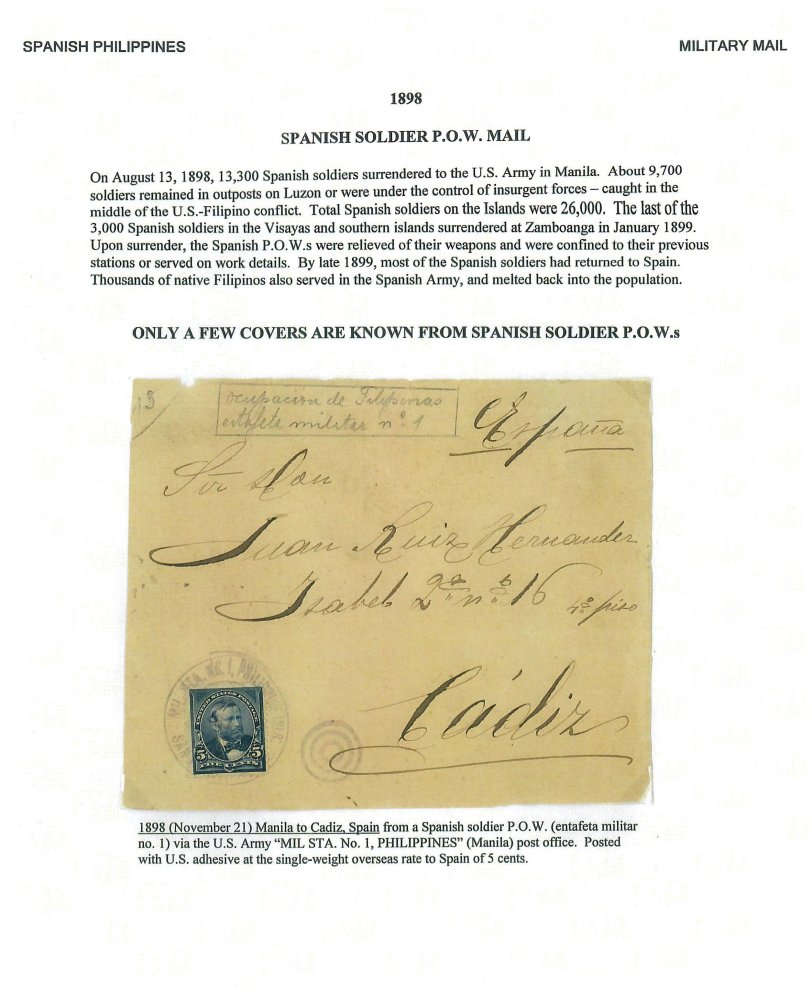 SPANISH PHILIPPINES
MILITARY MAIL
1898
SPANISH SOLDIER P.O.W. MAIL
On August 13, 1898, 13,300 Spanish soldiers surrendered to the U.S. Army in Manila. About 9,700
soldiers remained in outposts on Luzon or were under the control of insurgent forces – caught in the
middle of the U.S.-Filipino conflict. Total Spanish soldiers on the Islands were 26,000. The last of the
3,000 Spanish soldiers in the Visayas and southern islands surrendered at Zamboanga in January 1899.
Upon surrender, the Spanish P.O.W.s were relieved of their weapons and were confined to their previous
stations or served on work details. By late 1899, most of the Spanish soldiers had returned to Spain.
Thousands of native Filipinos also served in the Spanish Army, and melted back into the population.
ONLY A FEW COVERS ARE KNOWN FROM SPANISH SOLDIER P.O.W.s
13
ocupacion de Filipinas
estafeta militar nº 1
España
Sor Don
Juan Ruiz Hernander
Isabel 2ª nº 16 4º piso
Cádiz
MIL. STA. No. 1, PHILIPPINE
UNITED STATES POSTAGE
5 5
FIVE CENTS
1898 (November 21) Manila to Cadiz, Spain from a Spanish soldier P.O.W. (entafeta militar
no. 1) via the U.S. Army “MIL STA. No. 1, PHILIPPINES” (Manila) post office. Posted
with U.S. adhesive at the single-weight overseas rate to Spain of 5 cents.